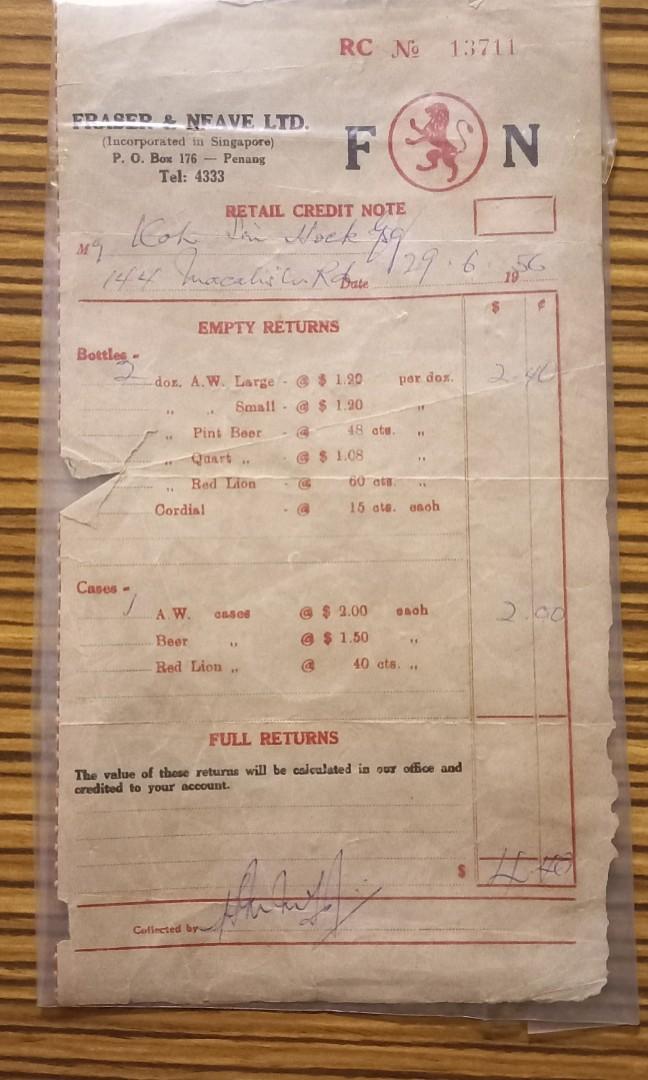 RC № 13711
FRASER & NEAVE LTD.
(Incorporated in Singapore)
P. O. Box 176 — Penang
Tel: 4333
F N
RETAIL CREDIT NOTE
M Koh Sin Hock Esq
144 Macalister Rd Date 29.6.1956
$ ¢
EMPTY RETURNS
Bottles -
2 doz. A.W. Large - @ $ 1.20 per doz. 2.40
,, ,, Small - @ $ 1.20 ,,
,, Pint Beer - @ 48 cts. ,,
,, Quart ,, - @ $ 1.08 ,,
,, Red Lion - @ 60 cts. ,,
Cordial - @ 15 cts. each
Cases -
1 A.W. cases @ $ 2.00 each 2.00
Beer ,, @ $ 1.50 ,,
Red Lion ,, @ 40 cts. ,,
FULL RETURNS
The value of these returns will be calculated in our office and
credited to your account.
$ 4.40
Collected by